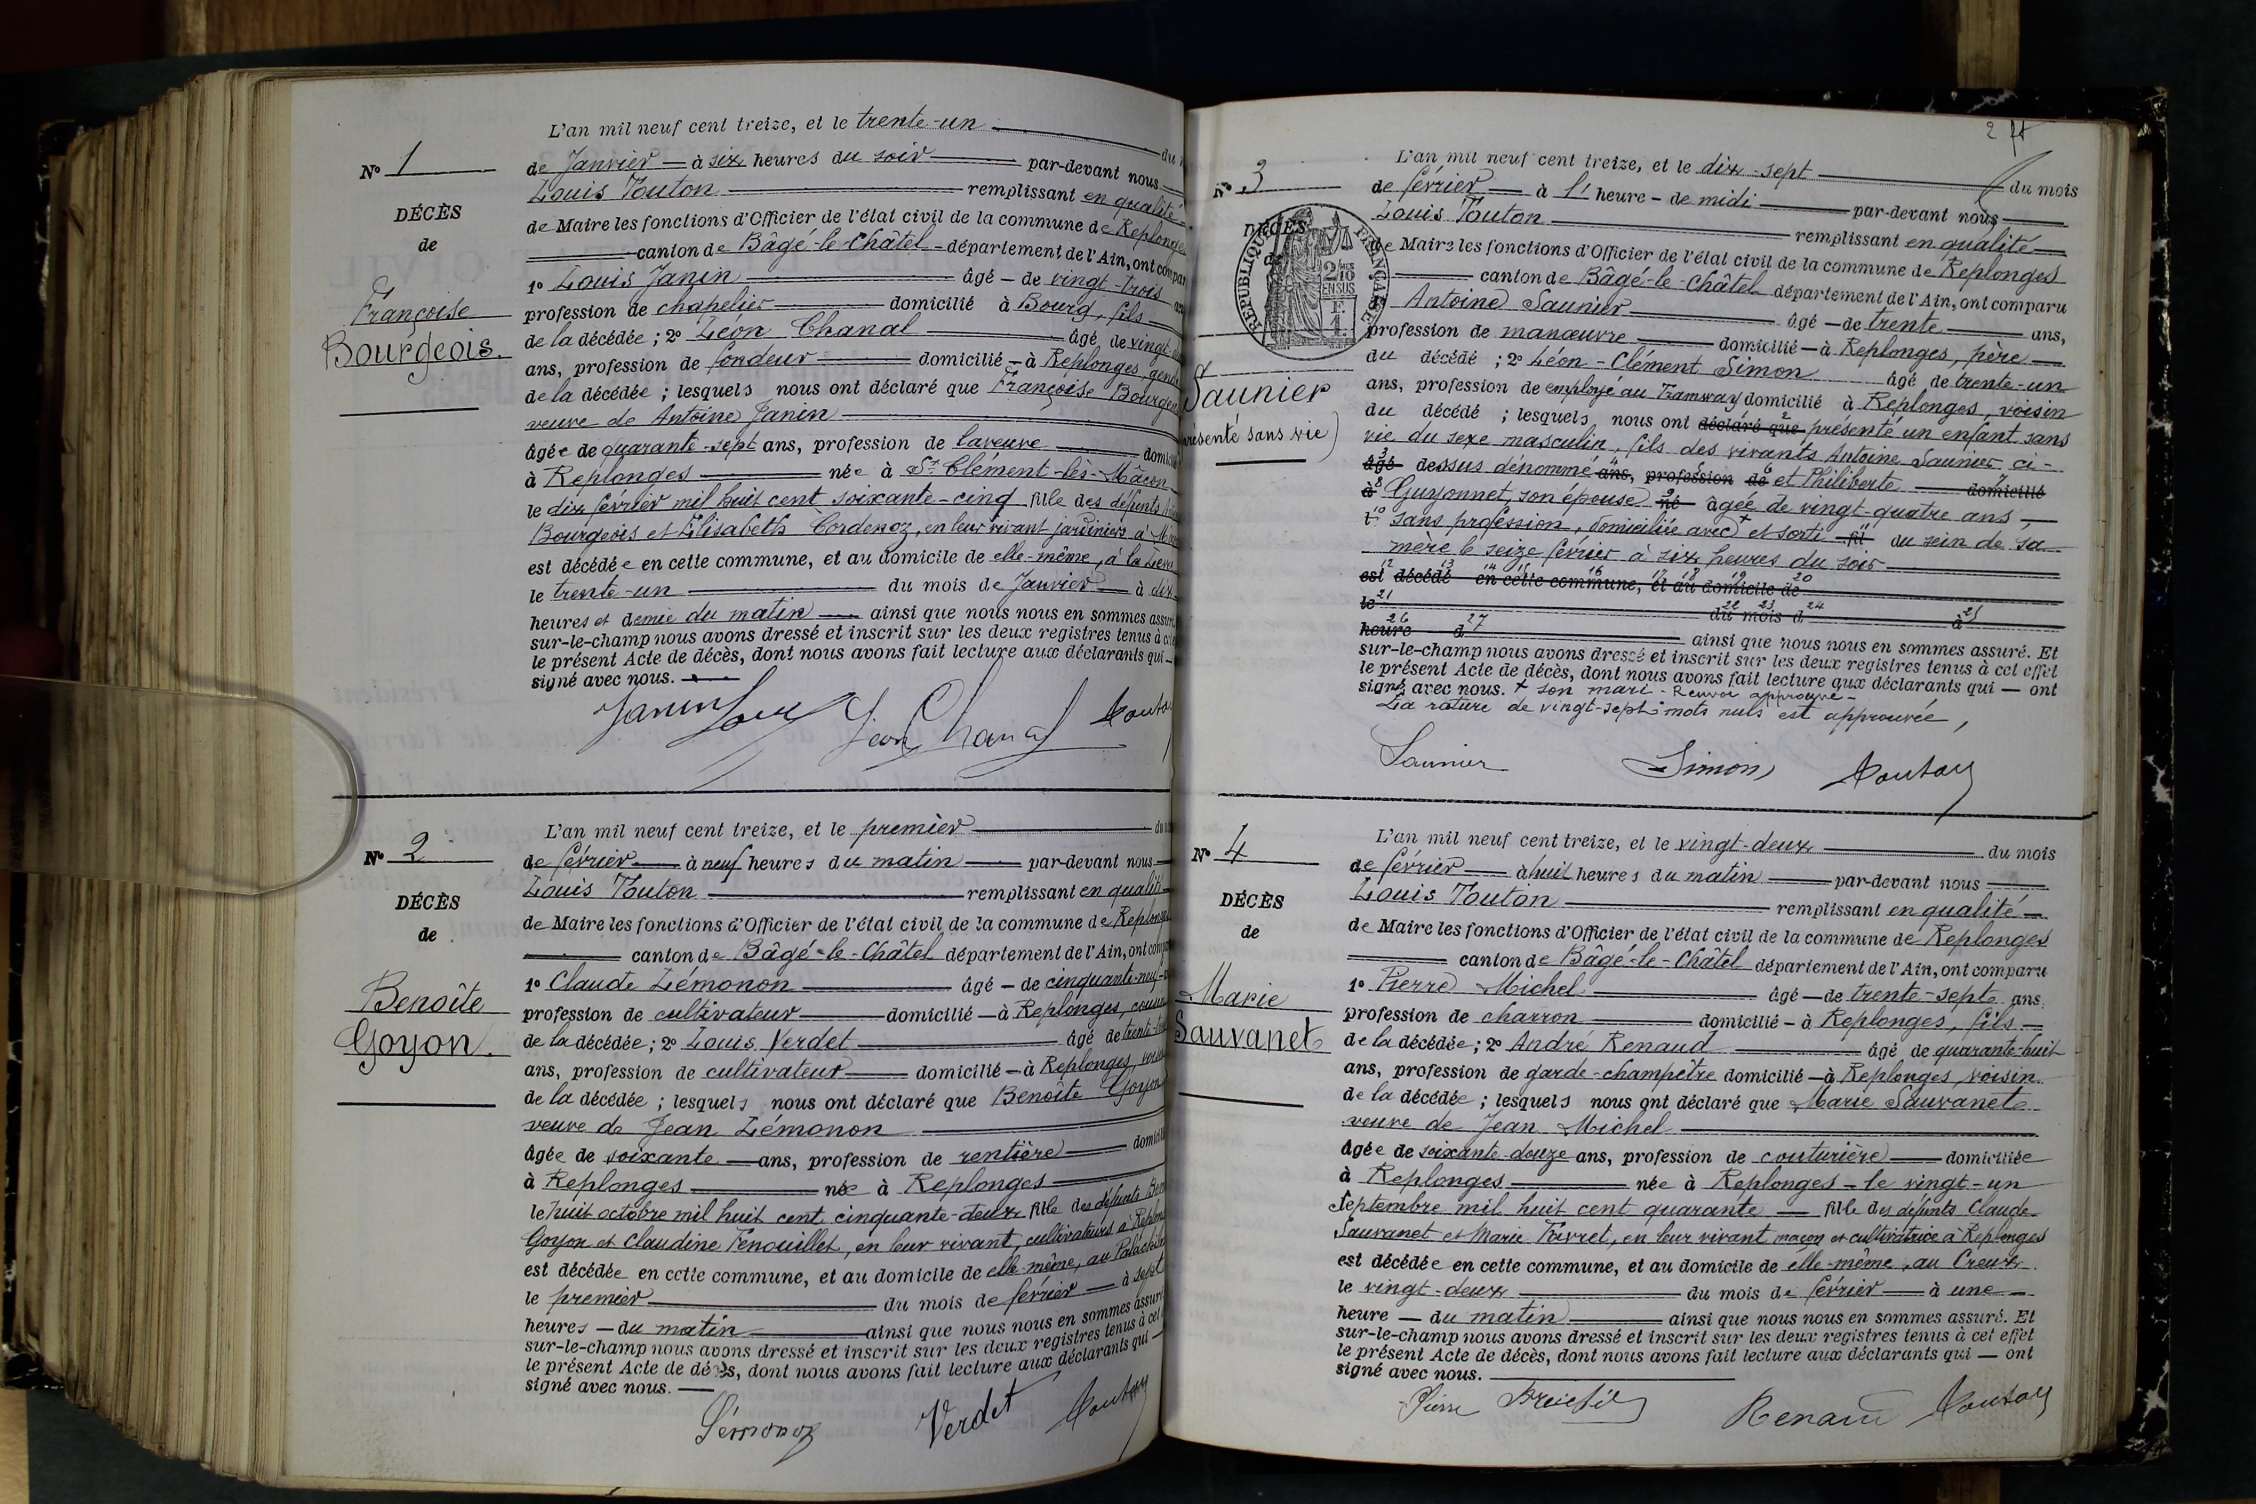 L'an mil neuf cent treize, et le trente-un
du
N° 1
de Janvier à six heures du soir par-devant nous
Louis Touton remplissant en qualité
DÉCÈS
de Maire les fonctions d'Officier de l'état civil de la commune de Replonges
de
canton de Bâgé-le-Châtel département de l'Ain, ont compar
1° Louis Janin âgé de vingt-trois
Françoise
profession de chapelier domicilié à Bourg, fils
Bourgeois.
de la décédée ; 2° Léon Chanal âgé de vingt
ans, profession de fondeur domicilié à Replonges, gend
de la décédée ; lesquels nous ont déclaré que Françoise Bourgeo
veuve de Antoine Janin
âgée de quarante-sept ans, profession de laveuse domici
à Replonges née à St Clément-lès-Mâcon
le dix février mil huit cent soixante-cinq fille des défunts
Bourgeois et Elisabeth Cordenoz, en leur vivant jardiniers à M
est décédée en cette commune, et au domicile de elle-même, à la Lev
le trente-un du mois de Janvier à dix
heures et demie du matin ainsi que nous nous en sommes assur
sur-le-champ nous avons dressé et inscrit sur les deux registres tenus à ce
le présent Acte de décès, dont nous avons fait lecture aux déclarants qui
signé avec nous.
Janin Louis Léon Chanal Touto
L'an mil neuf cent treize, et le premier du
N° 2
de février à neuf heures du matin par-devant nous
Louis Touton remplissant en qualité
DÉCÈS
de Maire les fonctions d'Officier de l'état civil de la commune de Replonges
de
canton de Bâgé-le-Châtel département de l'Ain, ont comp
1° Claude Lémonon âgé de cinquante-neuf
Benoîte
profession de cultivateur domicilié à Replonges, cousin
Goyon.
de la décédée ; 2° Louis Verdet âgé de trente
ans, profession de cultivateur domicilié à Replonges, voisin
de la décédée ; lesquels nous ont déclaré que Benoîte Goyon
veuve de Jean Lémonon
âgée de soixante ans, profession de rentière domicili
à Replonges née à Replonges
le huit octobre mil huit cent cinquante-deux fille des défunts
Goyon et Claudine Fenouillet, en leur vivant, cultivateurs à Replon
est décédée en cette commune, et au domicile de elle-même, au
le premier du mois de février à sept
heures du matin ainsi que nous nous en sommes assuré
sur-le-champ nous avons dressé et inscrit sur les deux registres tenus à cet
le présent Acte de décès, dont nous avons fait lecture aux déclarants qui
signé avec nous.
Lémonon Verdet Touton
2
L'an mil neuf cent treize, et le dix-sept du mois
N° 3
de février à 1 heure de midi par-devant nous
Louis Touton remplissant en qualité
DÉCÈS
de
RÉPUBLIQUE FRANÇAISE
2/10 EN SUS
de Maire les fonctions d'Officier de l'état civil de la commune de Replonges
canton de Bâgé-le-Châtel département de l'Ain, ont comparu
Antoine Saunier âgé de trente ans,
profession de manœuvre domicilié à Replonges, père
du décédé ; 2° Léon-Clément Simon âgé de trente-un
Saunier
ans, profession de employé au Tramway domicilié à Replonges, voisin
(présenté sans vie)
du décédé ; lesquels nous ont déclaré que présenté un enfant sans
vie du sexe masculin, fils des vivants Antoine Saunier, ci-
âgé dessus dénommé ans, profession de et Philiberte domicilié
à Guyonnet, son épouse né âgée de vingt-quatre ans,
sans profession, domiciliée avec + et sorti fil du sein de sa
mère le seize février à six heures du soir
est décédé en cette commune, et au domicile de
le du mois d à
heure d ainsi que nous nous en sommes assuré. Et
sur-le-champ nous avons dressé et inscrit sur les deux registres tenus à cet effet
le présent Acte de décès, dont nous avons fait lecture aux déclarants qui — ont
signé avec nous. + son mari - Renvoi approuvé -
La rature de vingt-sept mots nuls est approuvée,
Saunier Simon Touton
L'an mil neuf cent treize, et le vingt-deux du mois
N° 4
de février à huit heures du matin par-devant nous
Louis Touton remplissant en qualité
DÉCÈS
de Maire les fonctions d'Officier de l'état civil de la commune de Replonges
de
canton de Bâgé-le-Châtel département de l'Ain, ont comparu
1° Pierre Michel âgé de trente-sept ans
Marie
profession de charron domicilié à Replonges, fils
Sauvanet
de la décédée ; 2° André Renaud âgé de quarante-huit
ans, profession de garde-champêtre domicilié à Replonges, voisin
de la décédée ; lesquels nous ont déclaré que Marie Sauvanet
veuve de Jean Michel
âgée de soixante-douze ans, profession de couturière domiciliée
à Replonges née à Replonges le vingt-un
Septembre mil huit cent quarante fille des défunts Claude
Sauvanet et Marie Poivret, en leur vivant maçon et cultivatrice à Replonges
est décédée en cette commune, et au domicile de elle-même, au Creux
le vingt-deux du mois de février à une
heure du matin ainsi que nous nous en sommes assuré. Et
sur-le-champ nous avons dressé et inscrit sur les deux registres tenus à cet effet
le présent Acte de décès, dont nous avons fait lecture aux déclarants qui — ont
signé avec nous.
Pierre Renaud Touton